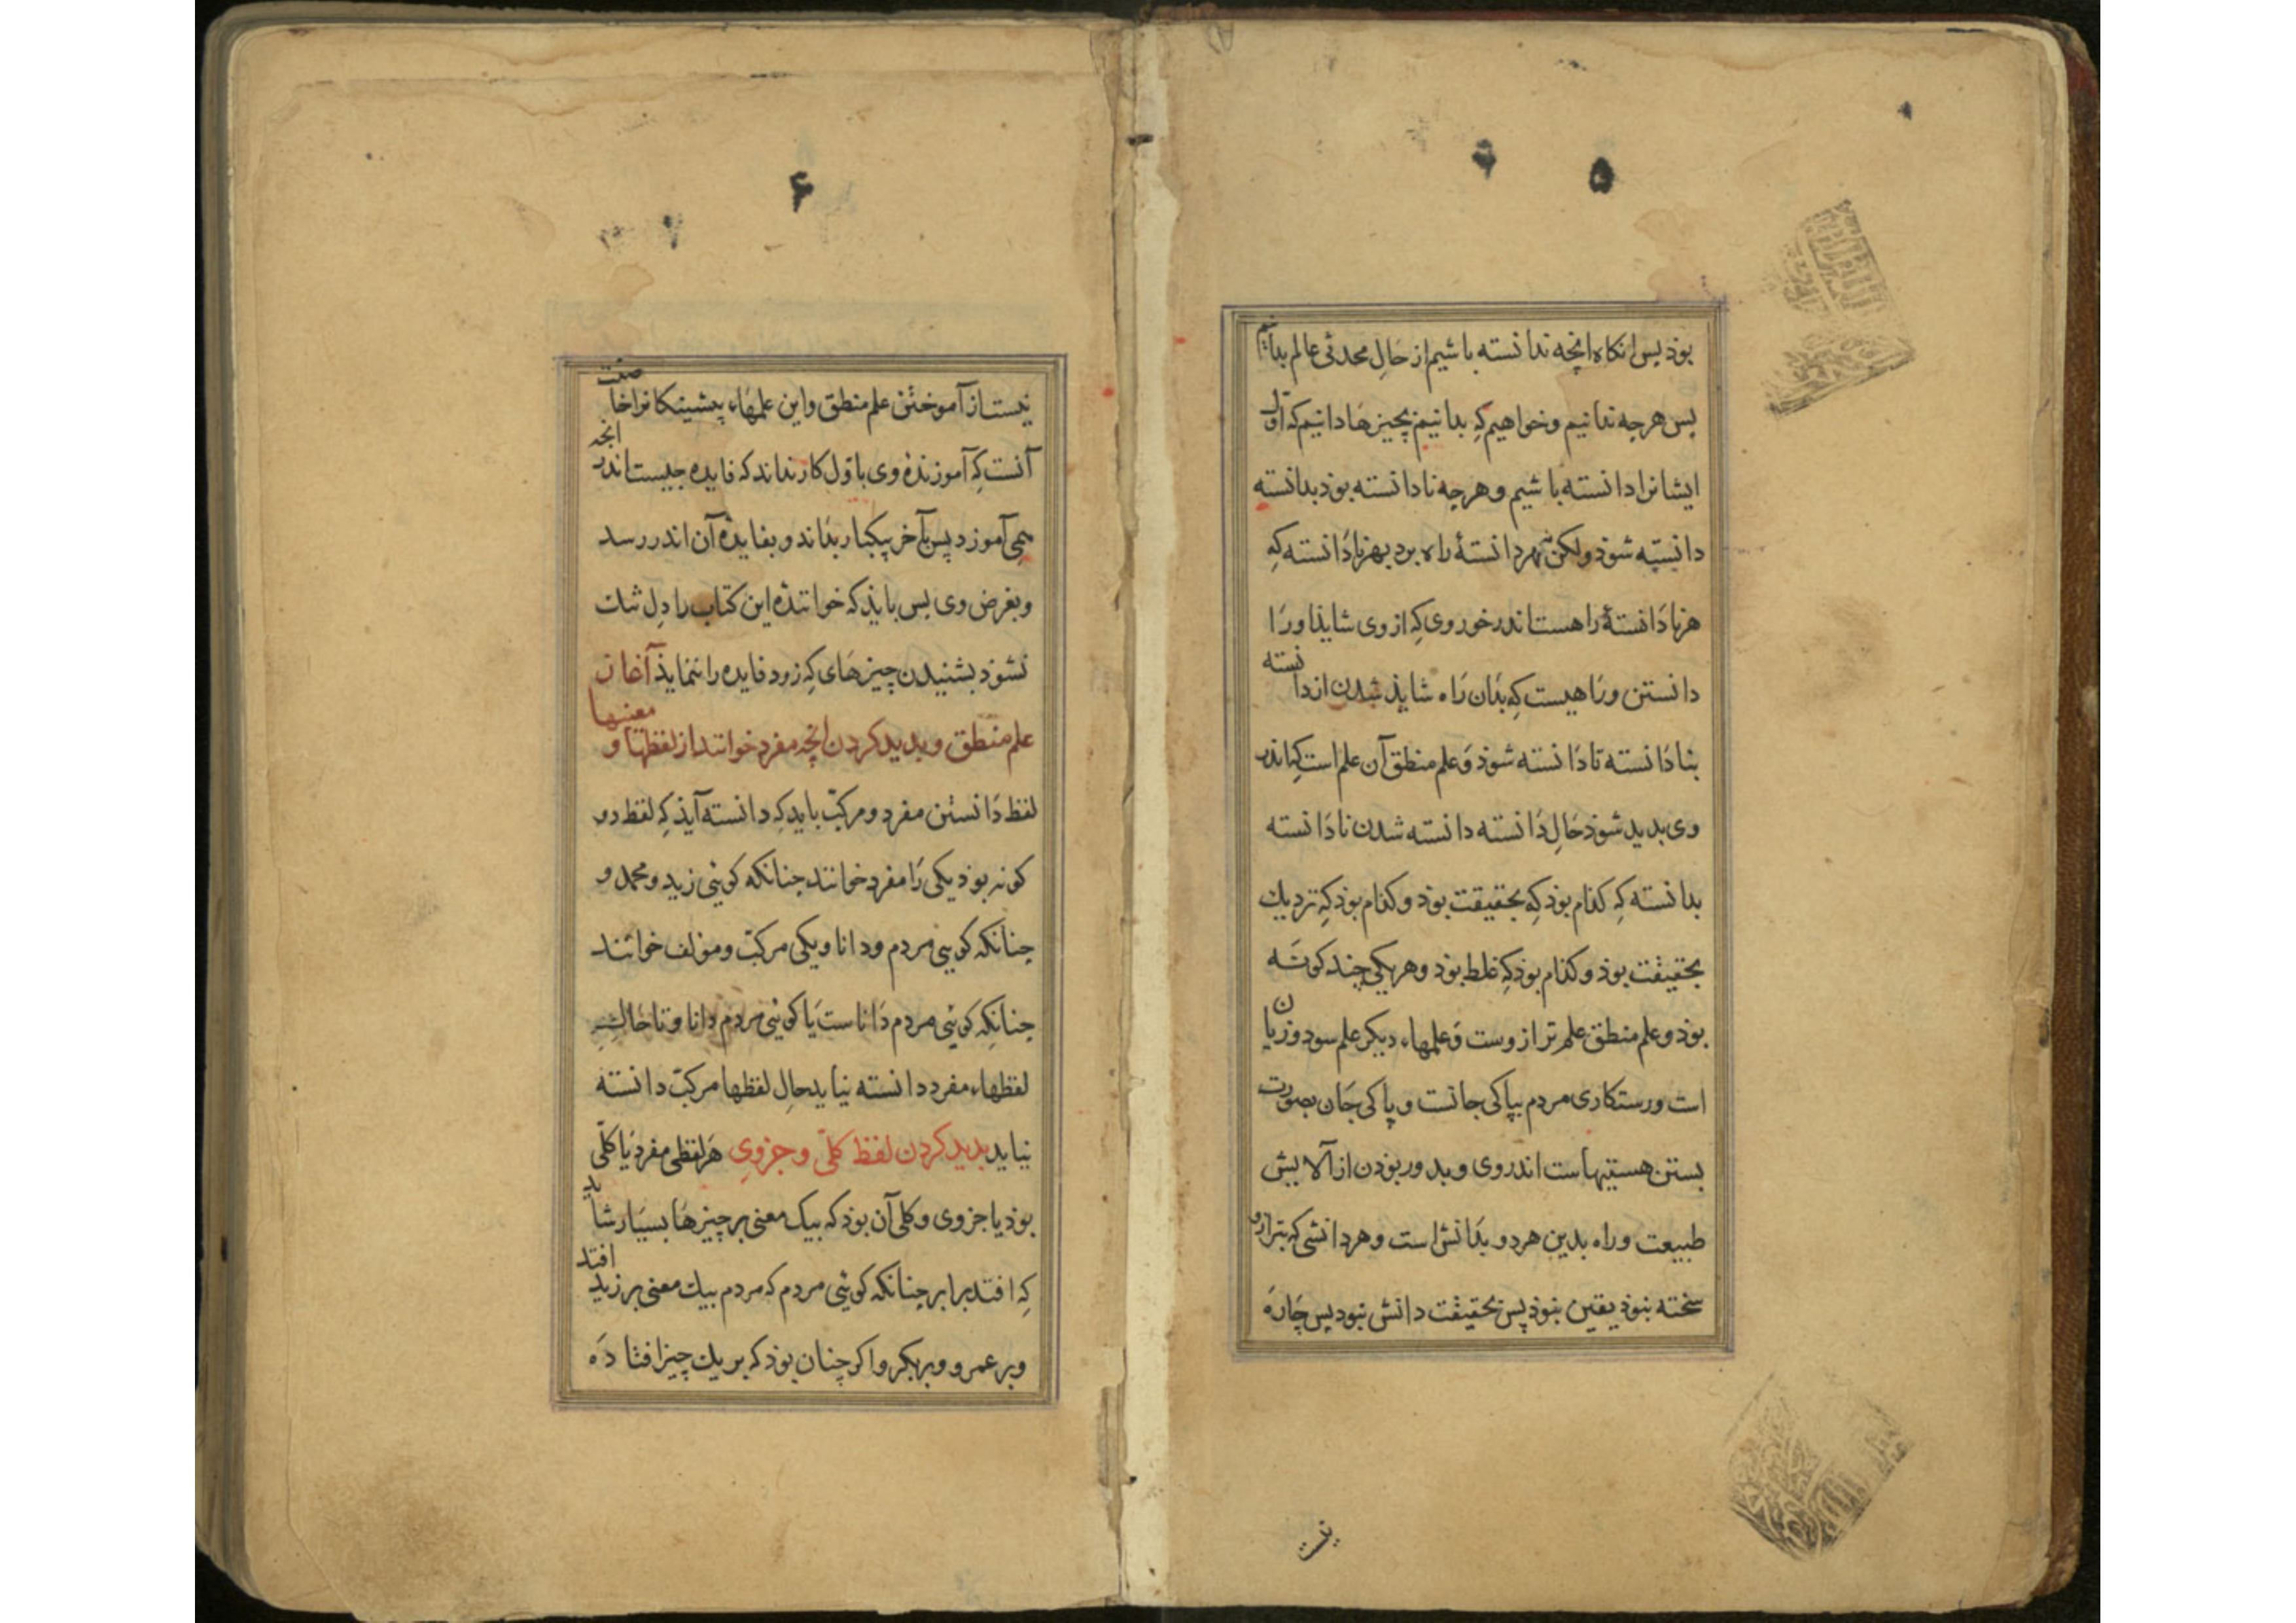 ۵
بوذ پس انکاه انچه ندانسته باشیم از حَالِ محدثی عالم بدانیم
پس هرچه ندانیم و خواهیم کِه بدانیم بچیزهَا دانیم که اوّل
ایشانرا دانسته باشیم و هرچه نادانسته بوذ بدانسته
دانسته شوذ ولکن نه هر دانستهٔ راه برد بهر نادَانسته کِه
هر نادَانستهٔ را هست اندر خور وی کِه از وی شایذ اورَا
دانستن و رَاهیست کِه بذان رَاه شایذ شدن از دانسته
بنادَانسته تا دَانسته شوذ وَ علم منطق آن علم است کِه اندر
وی بدید شوذ حَالِ دَانسته دانسته شدن نادَانسته
بدانسته کِه کذام بوذ کِه بحقیقت بوذ و کذام بوذ کِه نزدیك
بحقیقت بوذ و کذام بوذ کِه غلط بوذ و هر یکی چند کونَه
بوذ و علم منطق علم ترازوست وَ علمهاء دیکر علم سود و زیان
است و رستکاری مردم بپاکی جانست و پاکی جَان بصورت
بستن هستیهاست اندر وی و بدور بوذن از آلایش
طبیعت و راه بدین هر دو بدَانش است و هر دانشی که بترازو
سخته نبوذ یقین نبوذ پس بحقیقت دانش نبود پس چَارَه
نیست
۶
نیست از آموختن علم منطق و این علمهَاء پیشینکانرا خاصیت
آنست کِه آموزندهٔ وی باوّل کار نداند که فایده چیست اندر انچه
همی آموزد پس بآخر بیکبار بدَاند و بفایدهٔ آن اندر رسد
و بغرض وی پس بایذ که خوانندهٔ این کتاب را دِل تنك
نشوذ بشنیدن چیزهَای کِه زود فایده را ننمایذ آغاز
علم منطق و بدید کردن انچه مفرد خوانند از لفظها و معنیها
لفظ دَانستن مفرد و مرکبّ باید کِه دانسته آیذ کِه لفظ دو
کونه بوذ یکی رَا مفرد خوانند چنانکه کویئی زید و محمد و
چنانکه کویئی مردم و دانا و یکی مرکبّ و مؤلف خوانند
چنانکِه کویئی مردم دَاناست یَا کویئی مردم دانا و تا حَالِ
لفظهاء مفرد دانسته نیاید حالِ لفظها مرکبّ دانسته
نیاید بدید کردن لفظ کلّی و جزوی هَر لفظی مفرد یَا کلّی
بوذ یا جزوی و کلی آن بوذ که بیک معنی بر چیزهَا بسیَار شاید
کِه افتد برابر چنانکه کویئی مردم که مردم بیك معنی بر زید افتد
و بر عمرو و بر بکر و اکر چنان بوذ که بر یك چیز افتاذَه